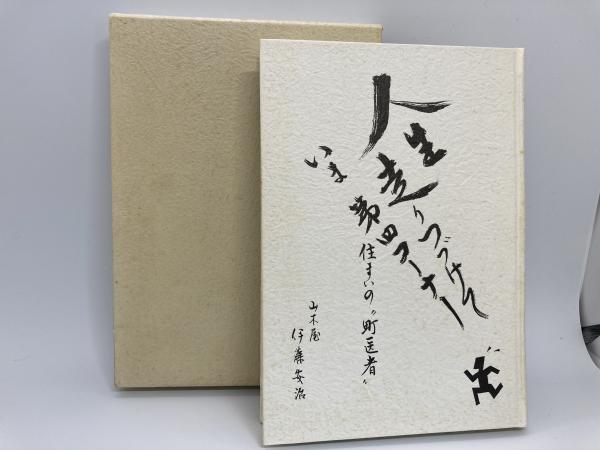 人生走りつづけて
いま第四コーナー
住まいの〝町医者〟
山木屋
伊藤安治